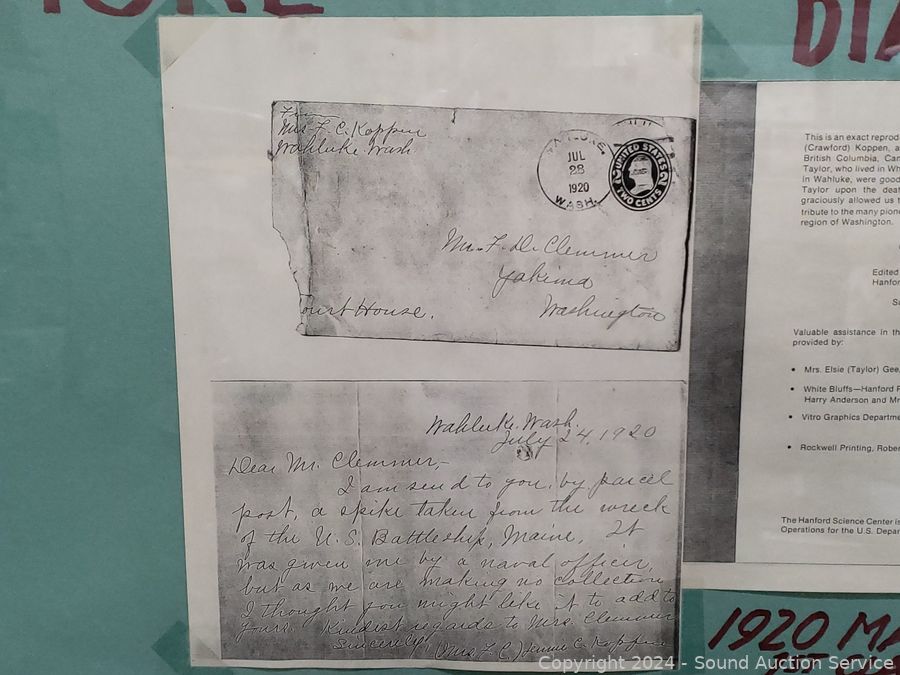 DIA
From
Mrs F. C. Koppen
Wahluke Wash
WAHLUKE,
JUL
28
1920
WASH.
UNITED STATES
2 2
TWO CENTS
Mr. F. D. Clemmer
Yakima
Washington
ourt House.
Wahluke, Wash.
July 24, 1920
Dear Mr. Clemmer,-
I am send to you, by parcel
post, a spike taken from the wreck
of the U.S. Battleship, Maine. It
was given me by a naval officer,
but as we are making no collection
I thought you might like it to add to
yours. Kindest regards to Mrs. Clemmer
Sincerely,
(Mrs. F. C.) Jennie C. Koppen
This is an exact reprod
(Crawford) Koppen, a
British Columbia, Can
Taylor, who lived in Wh
in Wahluke, were good
Taylor upon the deat
graciously allowed us t
tribute to the many pione
region of Washington.
Edited
Hanfor
Su
Valuable assistance in th
provided by:
• Mrs. Elsie (Taylor) Gee,
• White Bluffs—Hanford P
Harry Anderson and Mr
• Vitro Graphics Departme
• Rockwell Printing, Rober
The Hanford Science Center is
Operations for the U.S. Depar
1920 MA
1ST
Copyright 2024 - Sound Auction Service